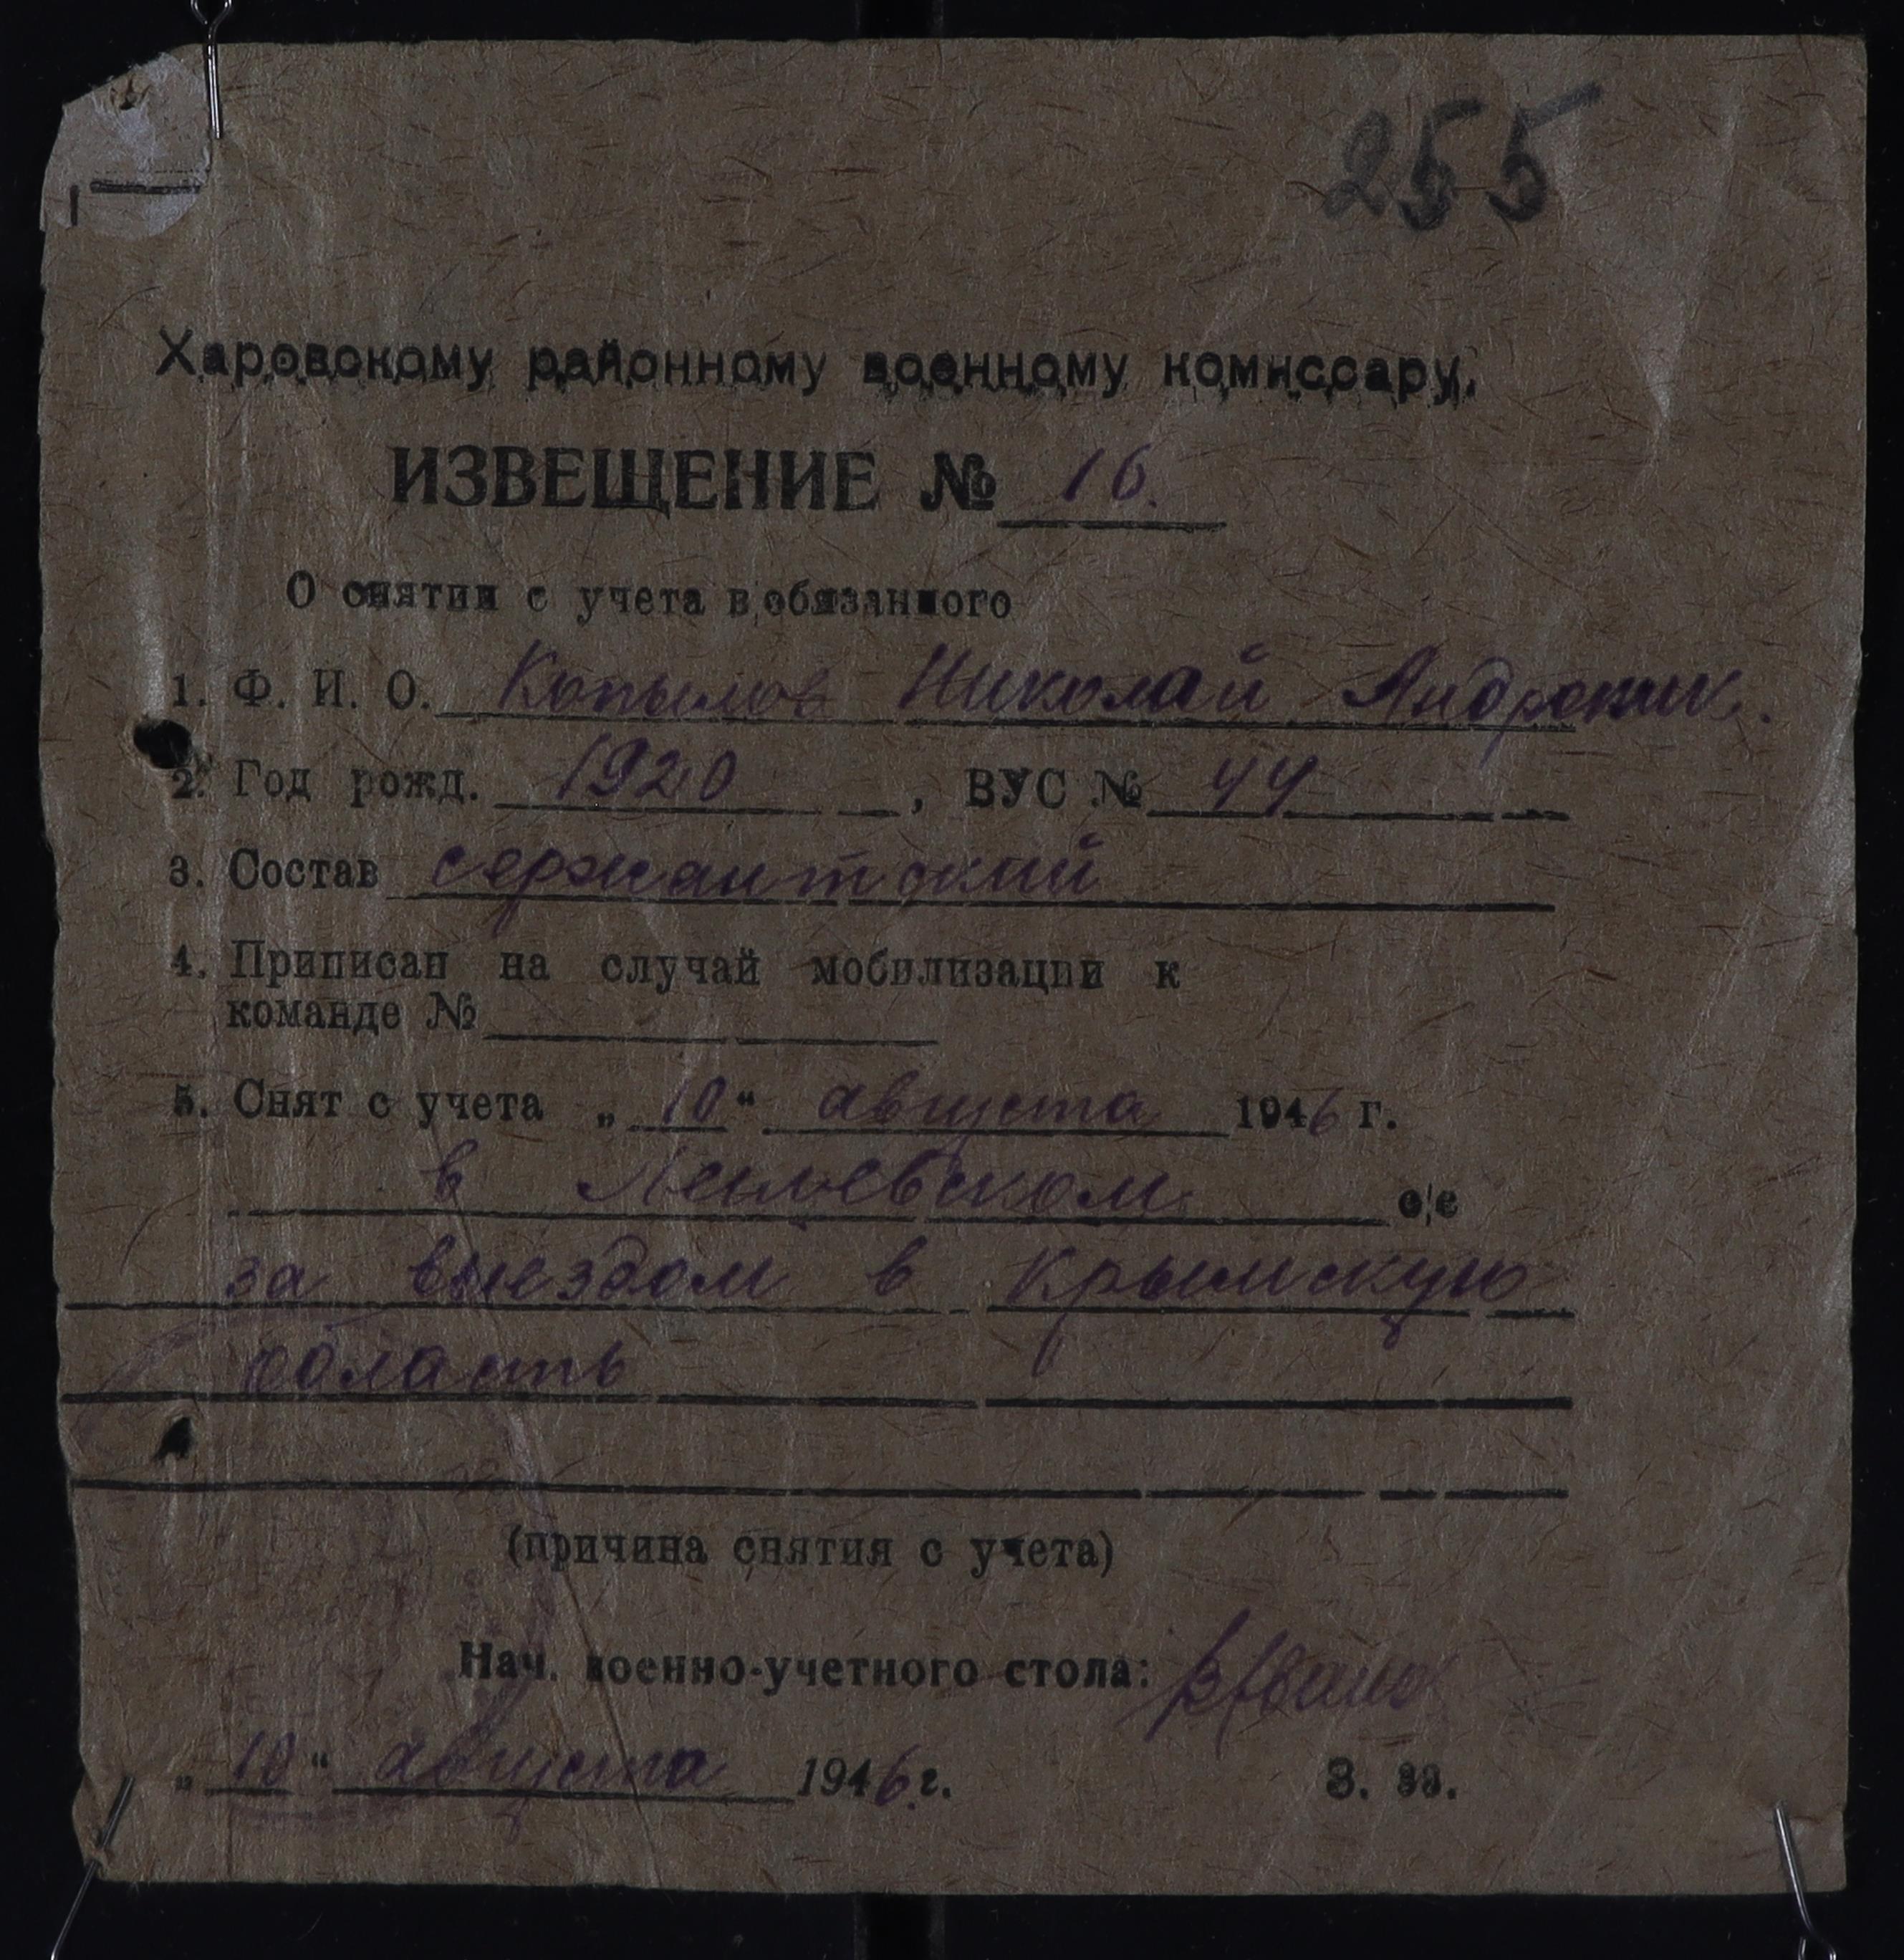 255
Харовскому районному военному комиссару.
ИЗВЕЩЕНИЕ № 16.
О снятии с учета в,обязанного
1. Ф. И. О. Копылов Николай Андроник.
2. Год рожд. 1920, ВУС № 44
3. Состав сержантский
4. Приписан на случай мобилизации к
команде №
5. Снят с учета „10“ августа 1946 г.
в с/с
за выездом в Крымскую
область
(причина снятия с учета)
Нач. военно-учетного стола:
„10“ августа 1946 г.
З. 33.